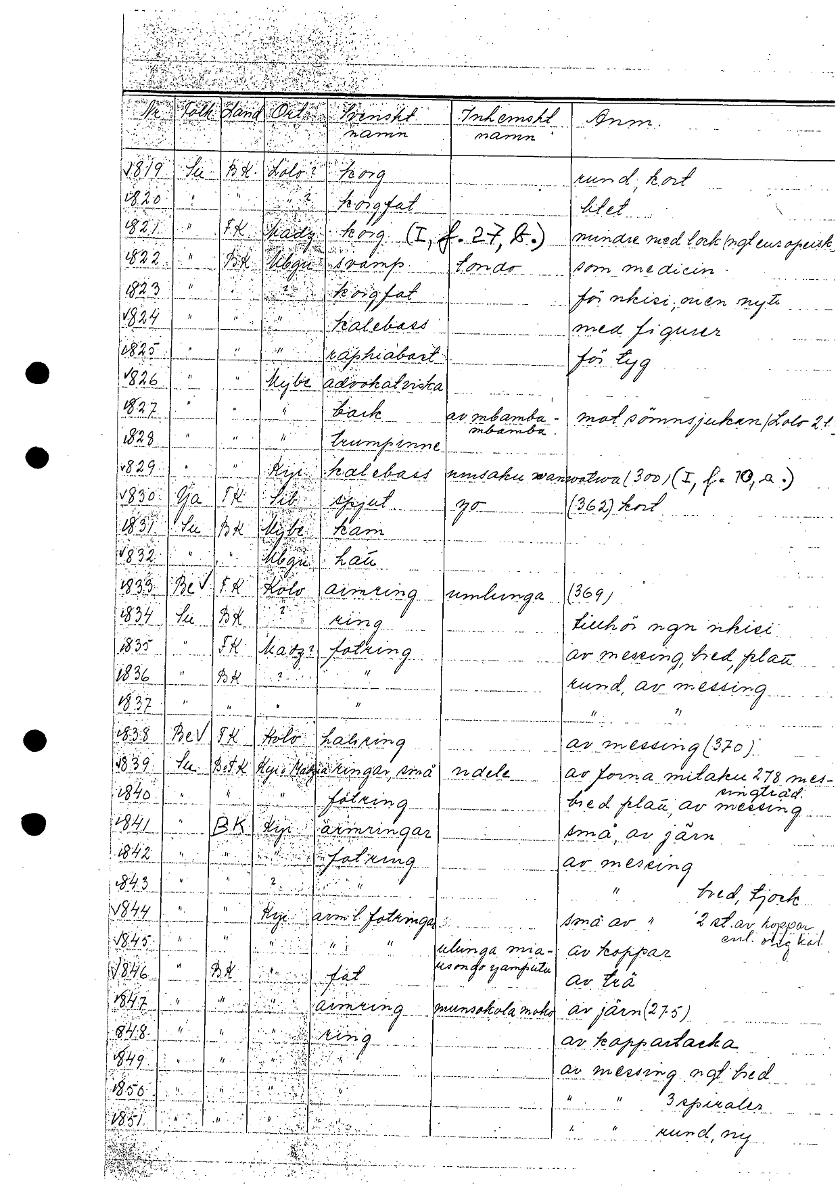 Nr Folk Land Ort Svenskt namn Inhemskt namn Anm.
1819 Su BK Lolo? korg rund, kort
1820 " " " ? korgfat blet
1821 " FK Madz korg (I, f. 27, b.) mindre med lock/ngt europeisk
1822 " BK Mbgu svamp tondo som medicin
1823 " " ? korgfat för nkisi, men nytt
1824 " " " kalebass med figurer
1825 " " " raphiabast för tyg
1826 " " Mybe advokatväska
1827 " " " bark av mbamba-mbamba mot sömnsjukan/Lolo 21
1828 " " " trumpinne
1829 " " Kyi kalebass (300) (I, f. 10, a.)
1830 Ya FK Sib spjut yo (362) kort
1831 Su BK Mybe kam
1832 " " Mbgu hatt
1833 Be √ FK Kolo armring umlunga (369)
1834 Su BK ? ring tillhör ngn nkisi
1835 " FK Madz? fotring av messing, bred, platt
1836 " BK ? " rund, av messing
1837 " " " " " "
1838 Be √ FK Kolo halsring av messing (370)
1839 Su B o FK Kyi o Madzia ringar, små ndele av forna mitaku 278 messingtråd
1840 " " " fotring bred platt, av messing
1841 " BK Kyi armringar små, av järn
1842 " " " fotring av messing
1843 " " ? " " bred, tjock
1844 " " Kyi arm l. fotringar små av " 2 st. av koppar enl. orig kat.
1845 " " " " " ulunga av koppar
1846 " BK " fat av trä
1847 " " " armring munsokola moko av järn (275)
1848 " " " ring av kopparlacka
1849 " " " " av messing ngt bred
1850 " " " " " 3 spiraler
1851 " " " " " rund, ny